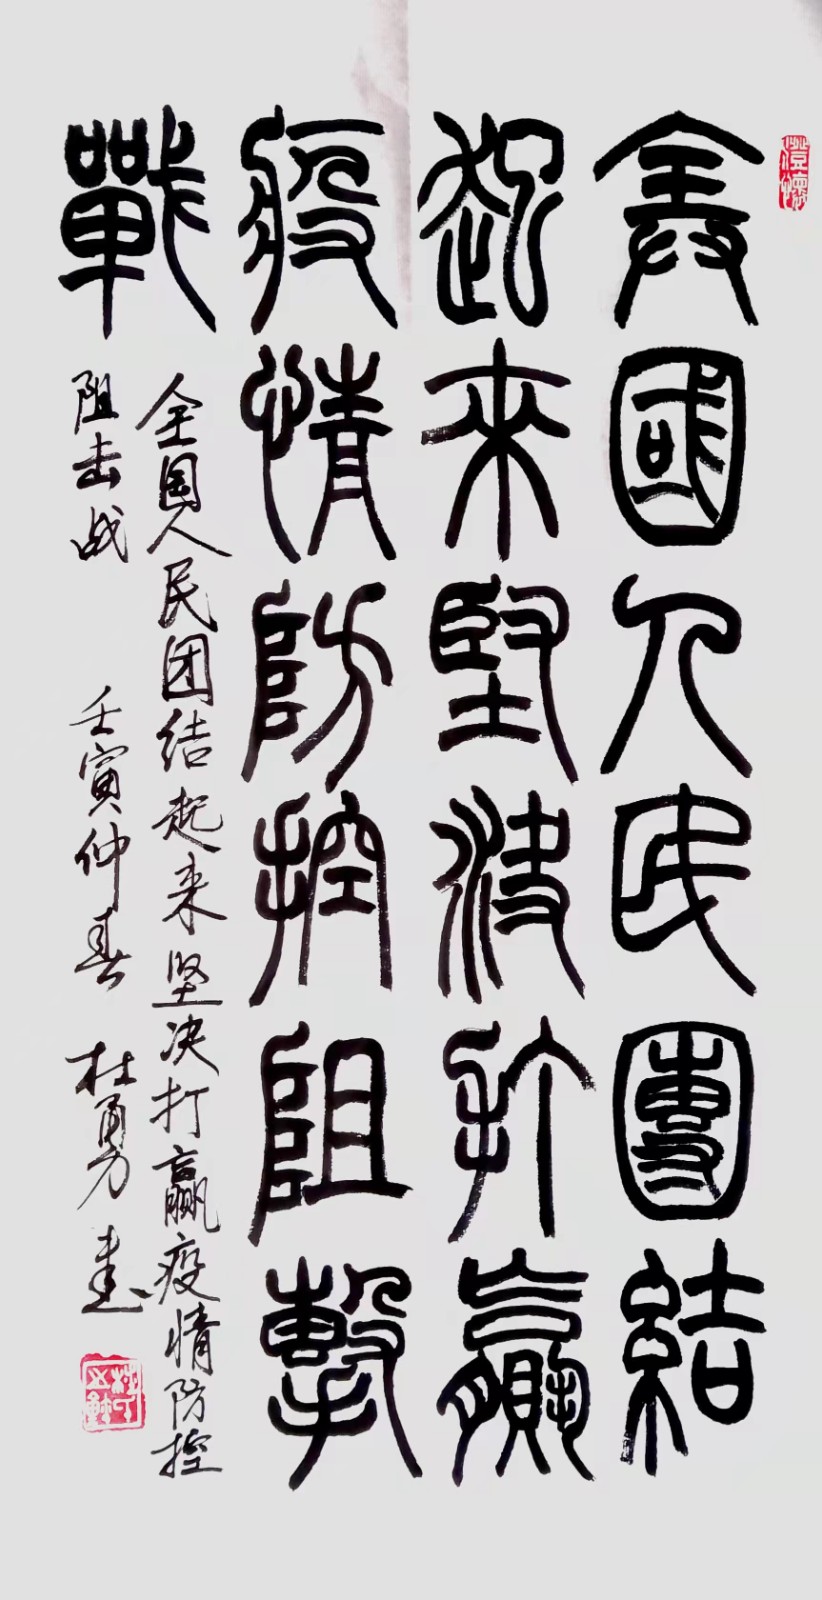 全國人民團結
起來堅決打贏
疫情防控阻擊
戰
全国人民团结起来坚决打赢疫情防控
阻击战 壬寅仲春 杜勇力书
澄懷